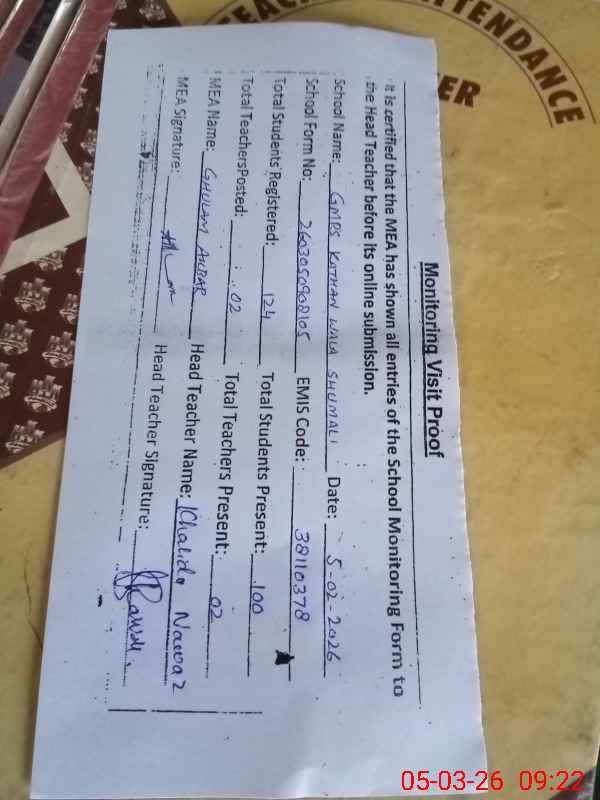 TENDANCE
ER
Monitoring Visit Proof
It is certified that the MEA has shown all entries of the School Monitoring Form to
the Head Teacher before its online submission.
School Name: GMPS KOTHAN WALA SHUMALI Date: 5-02-2026
School Form No: 2603050908105 EMIS Code: 38110378
Total Students Registered: 124 Total Students Present: 100
Total TeachersPosted: 02 Total Teachers Present: 02
MEA Name: GHULAM AKBAR Head Teacher Name: Khalida Nawaz
MEA Signature: Head Teacher Signature:
05-03-26 09:22